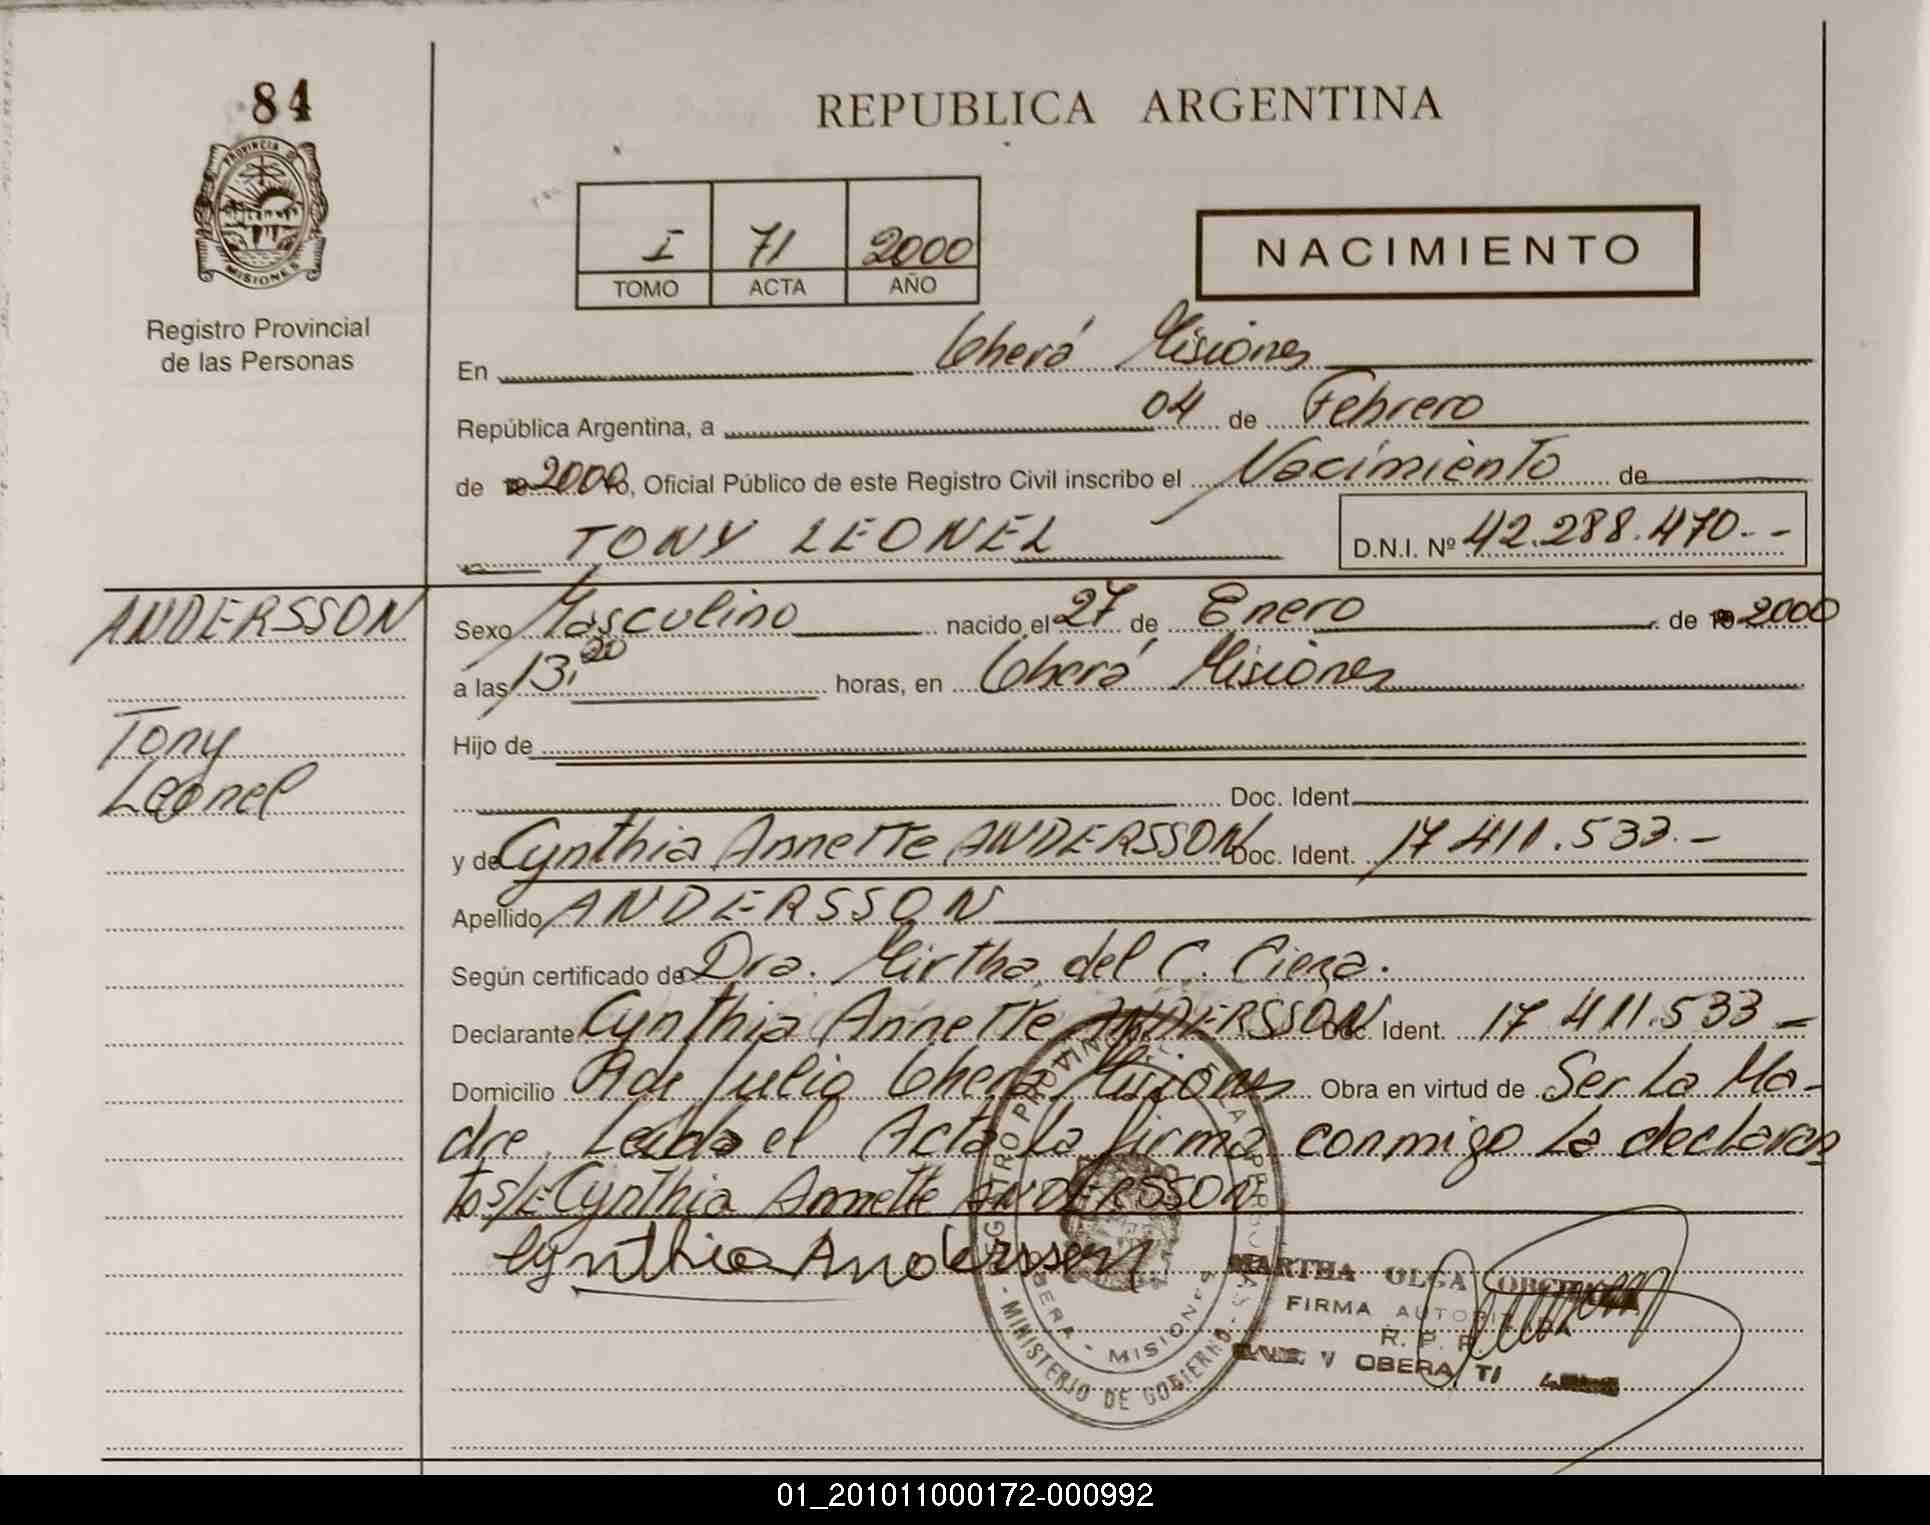 84
REPUBLICA ARGENTINA
PROVINCIA DE
MISIONES
I 71 2000
TOMO ACTA AÑO
NACIMIENTO
Registro Provincial
de las Personas
En Oberá Misiones
República Argentina, a 04 de Febrero
de 2000, Oficial Público de este Registro Civil inscribo el Nacimiento de
TONY LEONEL D.N.I. Nº 42.288.470.-
ANDERSSON
Tony
Leonel
Sexo Masculino nacido el 27 de Enero de 2000
a las 13,20 horas, en Oberá Misiones
Hijo de
Doc. Ident.
y de Cynthia Annette ANDERSSON Doc. Ident. 17.411.533.-
Apellido ANDERSSON
Según certificado de Dra. Mirtha del C. Cieza.
Declarante Cynthia Annette ANDERSSON Doc. Ident. 17.411.533-
Domicilio Julio Oberá Misiones Obra en virtud de Ser La Ma-
dre. Leída el Acta la firma conmigo la declaran
Cynthia Annette ANDERSSON
Cynthia Andersson
REGISTRO PROVINCIAL DE LAS PERSONAS
- MINISTERIO DE GOBIERNO -
OBERA - MISIONES
MARTHA OLGA
FIRMA AUTORIZADA
R. P. P.
V OBERA
01_201011000172-000992